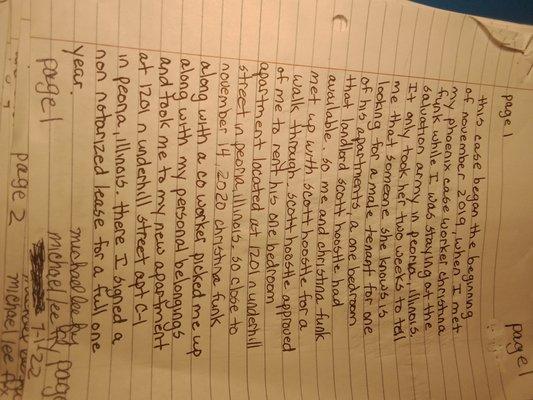 page 1
page 1
this case began the beginning
of november 2019, when I met
my phoenix case worker christina
funk while I was staying at the
salvation army in peoria, illinois.
It only took her two weeks to tell
me that someone she knows, is
looking for a male tenant for one
of his apartments a one bedroom
that landlord scott hoostle had
available. so me and christina funk
met up with scott hoostle for a
walk through. scott hoostle approved
of me to rent his one bedroom
apartment located at 1201 n underhill
street in peoria, illinois. so close to
november 14, 2020 christina funk
along with a co worker picked me up
along with my personal belongings
and took me to my new apartment
at 1201 n underhill street apt C-1
in peoria, illinois. there I signed a
non notarized lease for a full one
year.
michael lee
page 1 michael lee page
7-1-22
page 2 michael lee